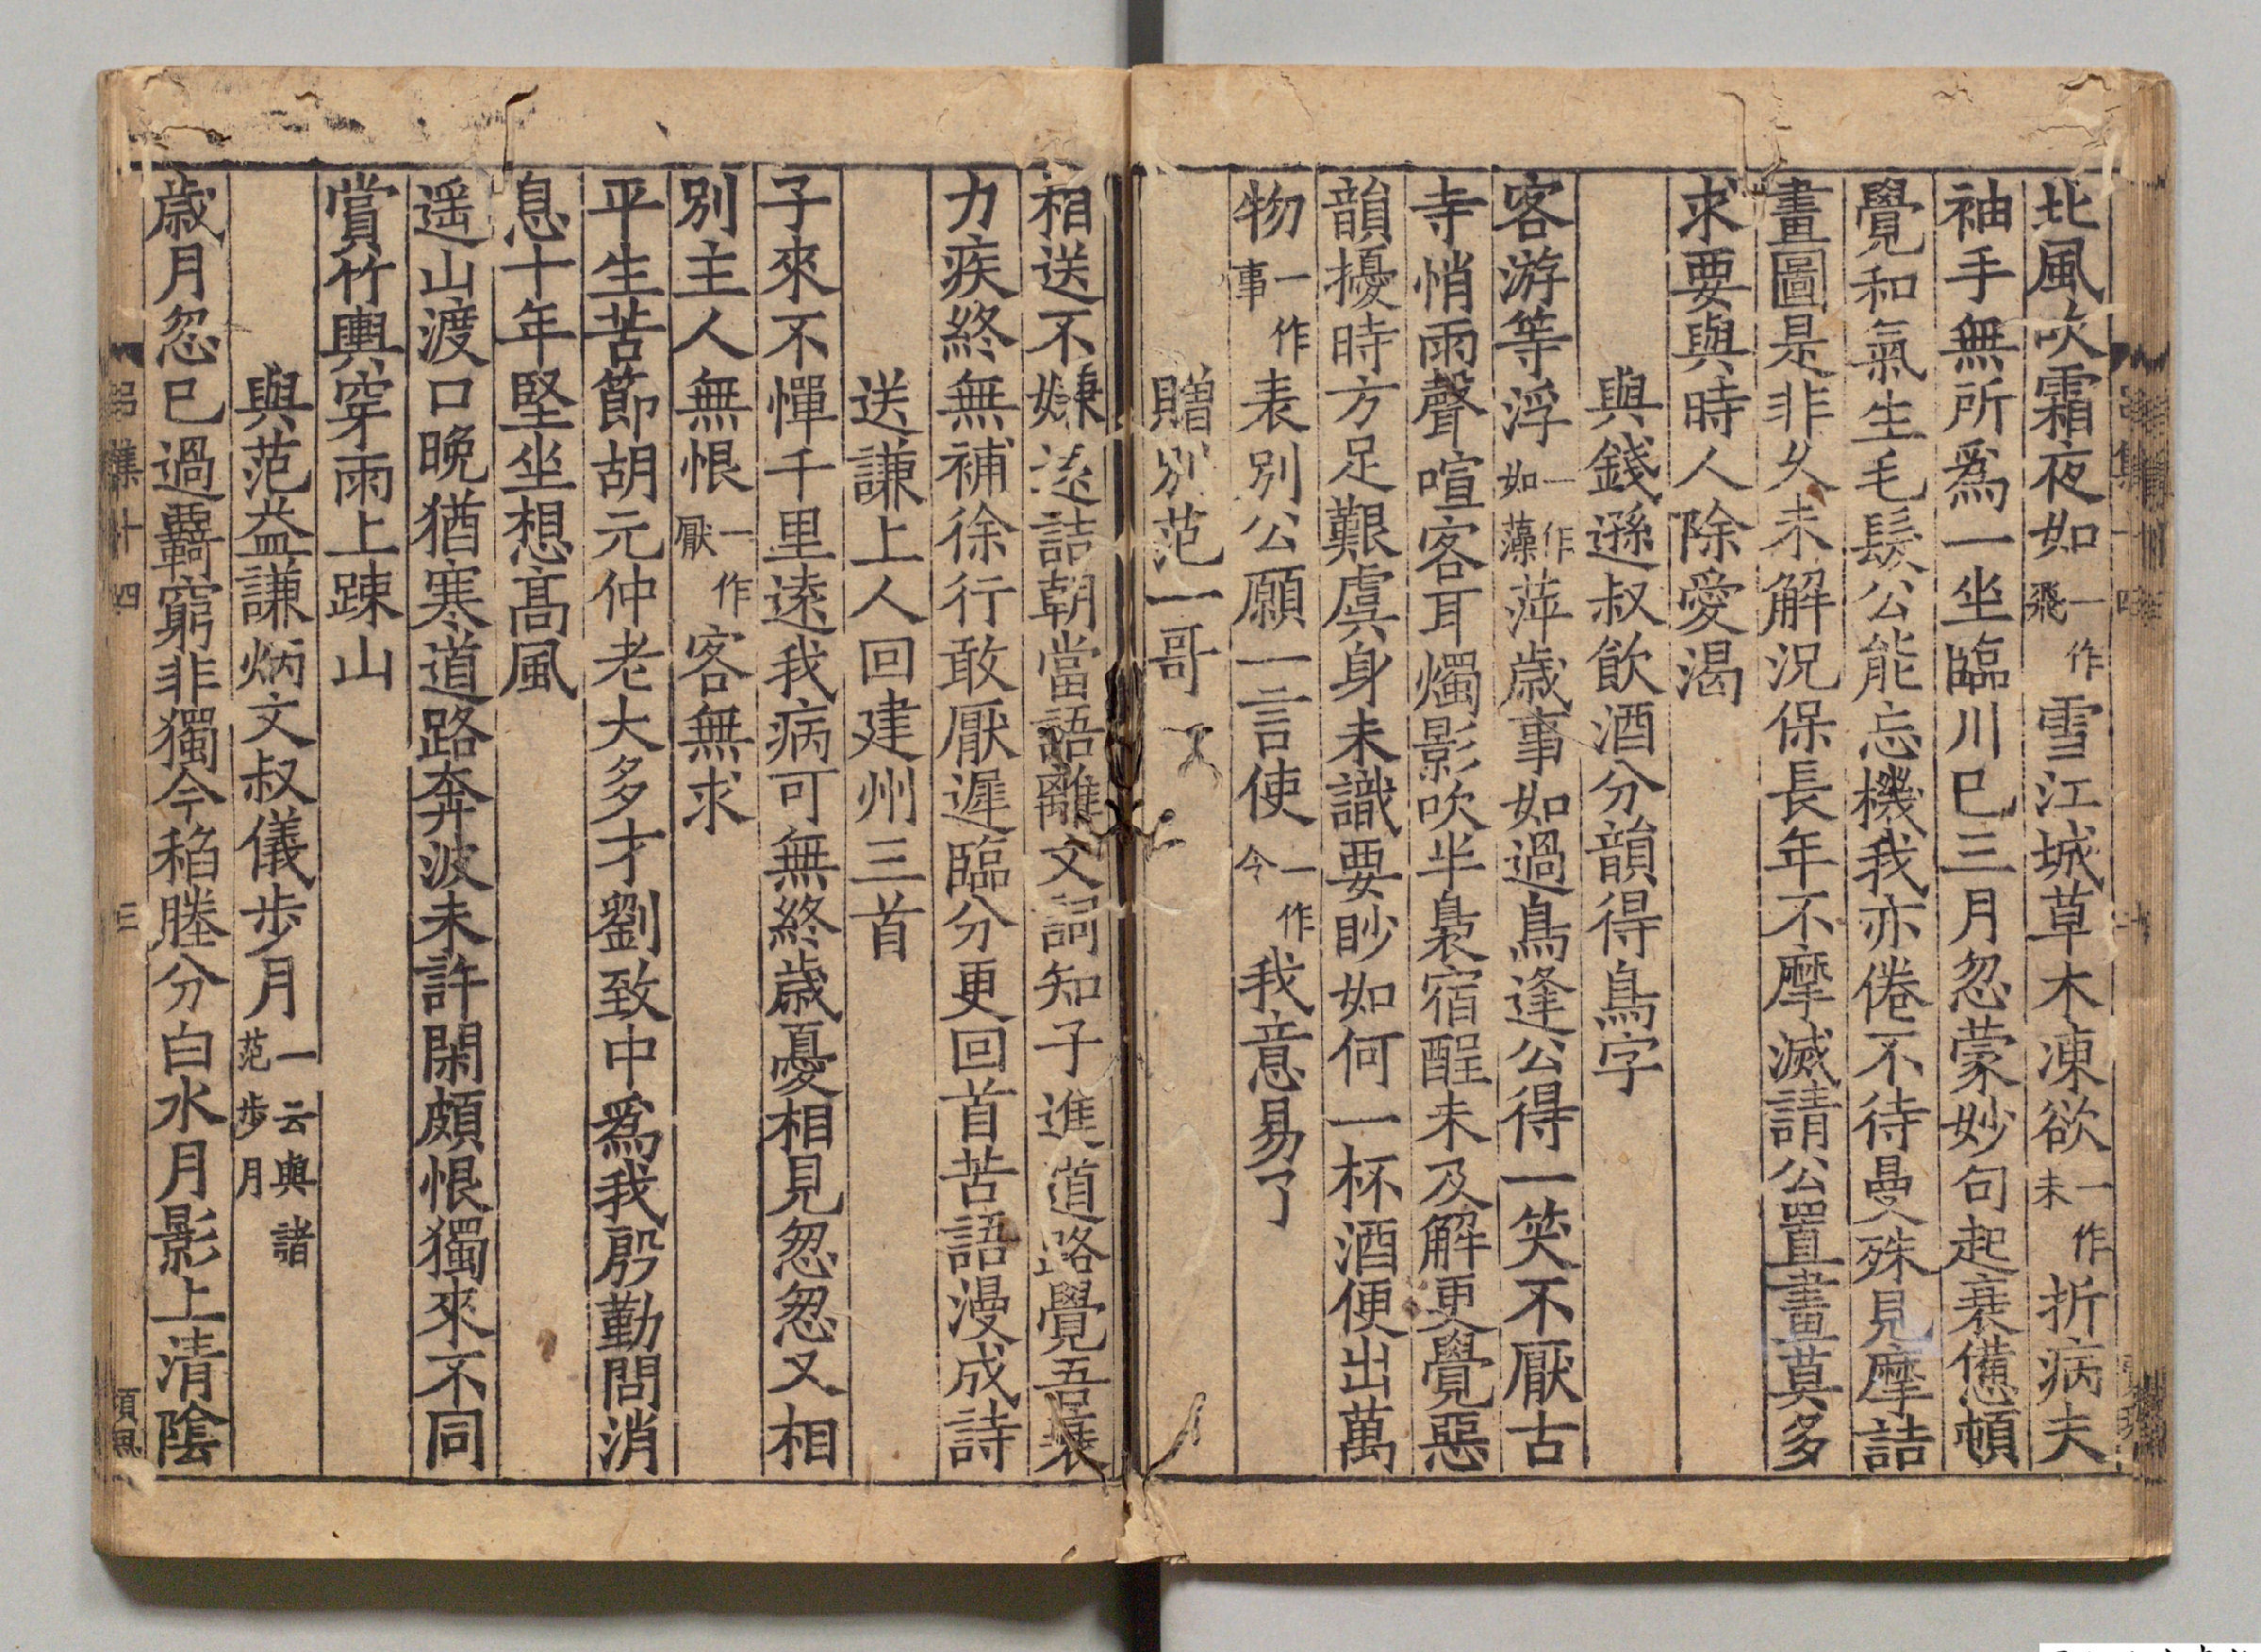 北風吹霜夜如一作飛雪江城草木凍欲一作未折病夫
袖手無所爲一坐臨川巳三月忽蒙妙句起衰憊頓
覺和氣生毛髮公能忘機我亦倦不待曼殊見摩詰
畫圖是非久未解況保長年不摩滅請公置畫莫多
求要與時人除愛渴
與錢遜叔飲酒分韻得鳥字
客游等浮一作如藻萍歲事如過鳥逢公得一笑不厭古
寺悄雨聲喧客耳燭影吹半裊宿酲未及解更覺惡
韻擾時方足艱虞身未識要眇如何一杯酒便出萬
物一作事表別公願一言使一作今我意易了
贈別范一哥
相送不嫌遠詰朝當語離文詞知子進道路覺吾衰
力疾終無補徐行敢厭遲臨分更回首苦語漫成詩
送謙上人回建州三首
子來不憚千里遠我病可無終歲憂相見怱怱又相
別主人無恨一作厭客無求
平生苦節胡元仲老大多才劉致中爲我殷勤問消
息十年堅坐想高風
遥山渡口晚猶寒道路奔波未許閑頗恨獨來不同
賞竹輿穿雨上踈山
與范益謙炳文叔儀步月一云與諸范步月
歲月忽巳過覉窮非獨今稻塍分白水月影上清陰